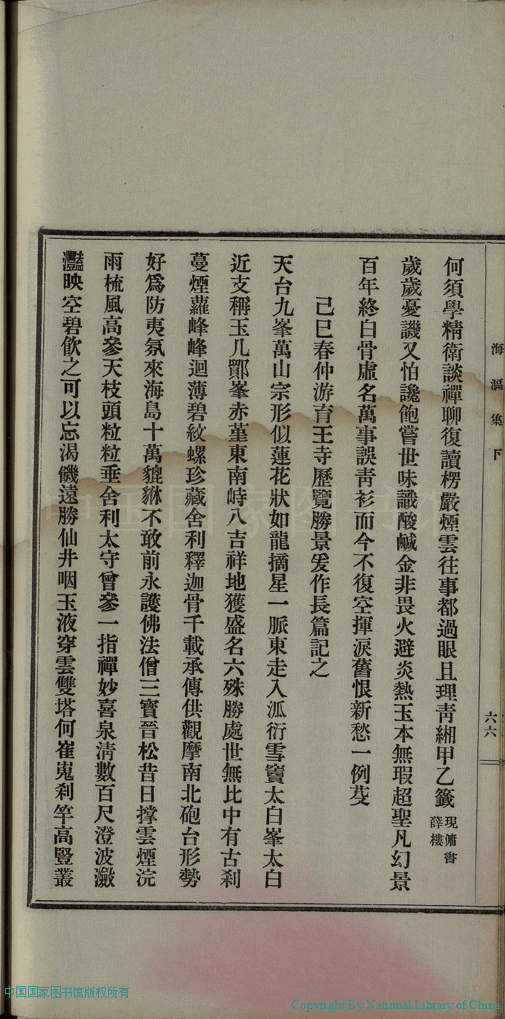 海漚集下
六六
何須學精衛談禪聊復讀楞嚴煙雲往事都過眼且理靑緗甲乙籤現傭書薛樓
歲歲憂譏又怕讒飽嘗世味識酸鹹金非畏火避炎熱玉本無瑕超聖凡幻景
百年終白骨虛名萬事誤靑衫而今不復空揮淚舊恨新愁一例芟
己巳春仲游育王寺歷覽勝景爰作長篇記之
天台九峯萬山宗形似蓮花狀如龍摘星一脈東走入泒衍雪竇太白峯太白
近支稱玉几鄮峯赤堇東南峙八吉祥地獲盛名六殊勝處世無比中有古刹
蔓煙蘿峰峰迴薄碧紋螺珍藏舍利釋迦骨千載承傳供觀摩南北砲台形勢
好爲防夷氛來海島十萬貔貅不敢前永護佛法僧三寶晉松昔日撑雲煙浣
雨梳風高參天枝頭粒粒垂舍利太守曾參一指禪妙喜泉淸數百尺澄波瀲
灩映空碧飲之可以忘渴饑遠勝仙井咽玉液穿雲雙塔何崔嵬刹竿高豎叢
中国国家图书馆版权所有
Copyright By National Library of China